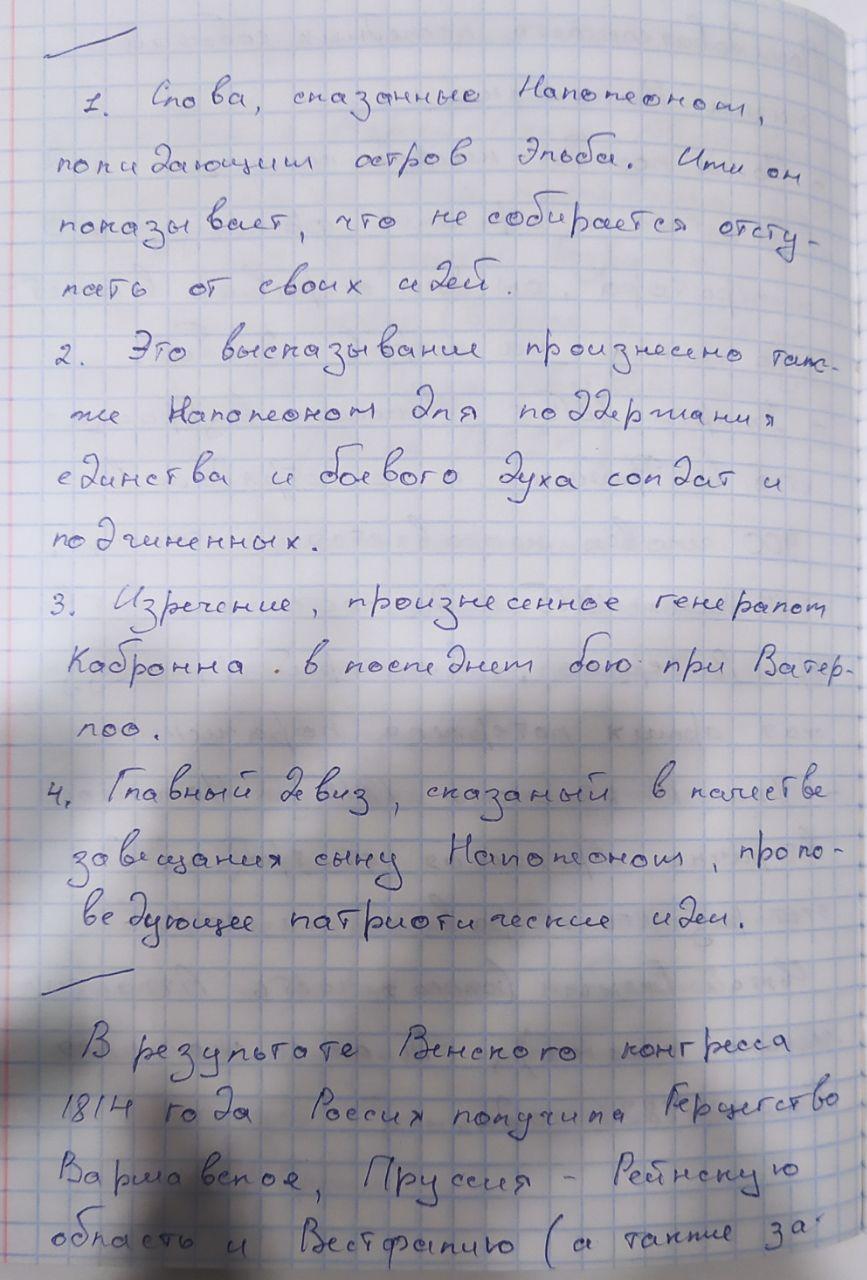 1. Слова, сказанные Наполеоном,
покидающим остров Эльба. Ими он
показывает, что не собирается отсту-
пать от своих идей.
2. Это высказывание произнесено так-
же Наполеоном для поддержания
единства и боевого духа солдат и
подчиненных.
3. Изречение, произнесенное генералом
Кабронна в последнем бою при Ватер-
лоо.
4. Главный девиз, сказаный в качестве
завещания сыну Наполеоном, пропо-
ведующее патриотические идеи.
В результате Венского конгресса
1814 года Россия получила Герцегство
Варшавское, Пруссия - Рейнскую
область и Вестфалию (а также за-